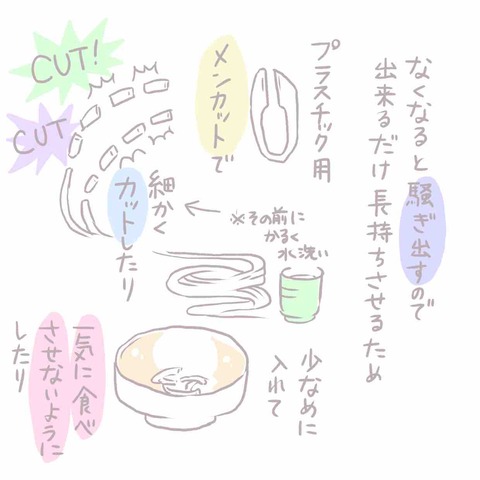 なくなると騒ぎ出すので
出来るだけ長持ちさせるため
プラスチック用
メンカットで
CUT!
CUT
細かく
カットしたり
※その前に
かるく
水洗い
少なめに
入れて
一気に食べ
させないように
したり